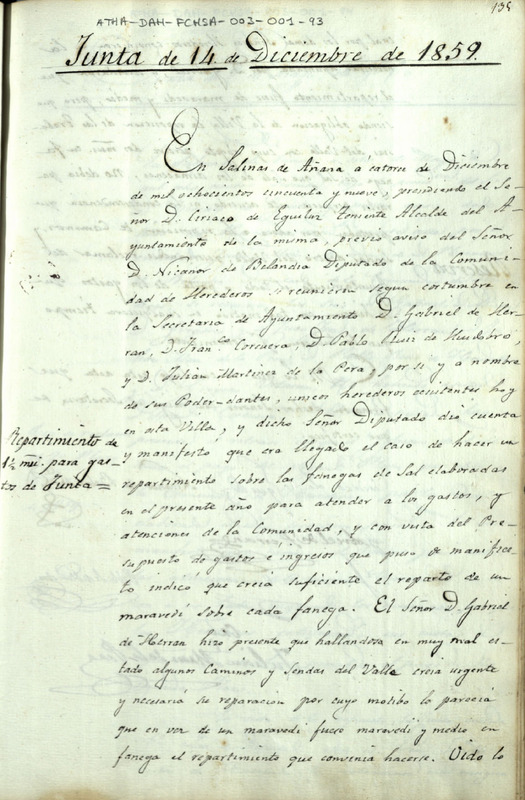 ATHA-DAH-FCHSA-003-001-93
135
Junta de 14 de Diciembre de 1859.
En Salinas de Añana á catorce de Diciembre
de mil ochocientos cincuenta y nueve, presidiendo el Se-
ñor D. Ciriaco de Eguiluz Teniente Alcalde del A-
yuntamiento de la misma, previo aviso del Señor
D. Nicanor de Belandia Diputado de la Comuni-
dad de Herederos se reunieron segun costumbre en
la Secretaria de Ayuntamiento D. Gabriel de Her-
ran, D. Franco Corcuera, D. Pablo Ruiz de Huidobro,
y D. Julian Martinez de la Pera, por si y a nombre
de sus Poder-dantes, unicos herederos ecsistentes hoy
en esta Villa, y dicho Señor Diputado dió cuenta
y manifestó que era llegado el caso de hacer un
repartimiento sobre las fanegas de Sal elaboradas
en el presente año para atender a los gastos, y
atenciones de la Comunidad, y con vista del Pre-
supuesto de gastos e ingresos que puso de manifies-
to indicó que creia suficiente el reparto de un
maravedi sobre cada fanega. El Señor D. Gabriel
de Herran hizo presente que hallandose en muy mal es-
tado algunos Caminos y Sendas del Valle creia urgente
y necesaria su reparacion por cuyo motibo le parecia
que en vez de un maravedi fuese maravedi y medio en
fanega el repartimiento que convenia hacerse. Oido lo
Repartimiento de
1½ mrs. para gas-
tos de Junta=